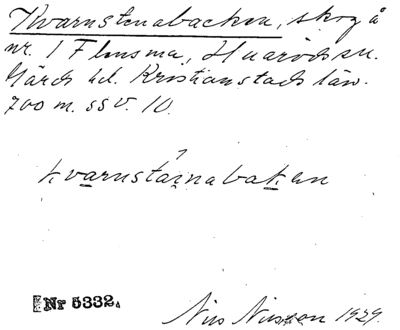 Kvarnstenabacken, skog å
nr. 1 Flinsma, Huaröds sn.
Gärds hd. Kristianstads län.
700 m. SSV. 10.
kvarnstäinabaken
Nr 5332.
Nils Nilsson 1929.